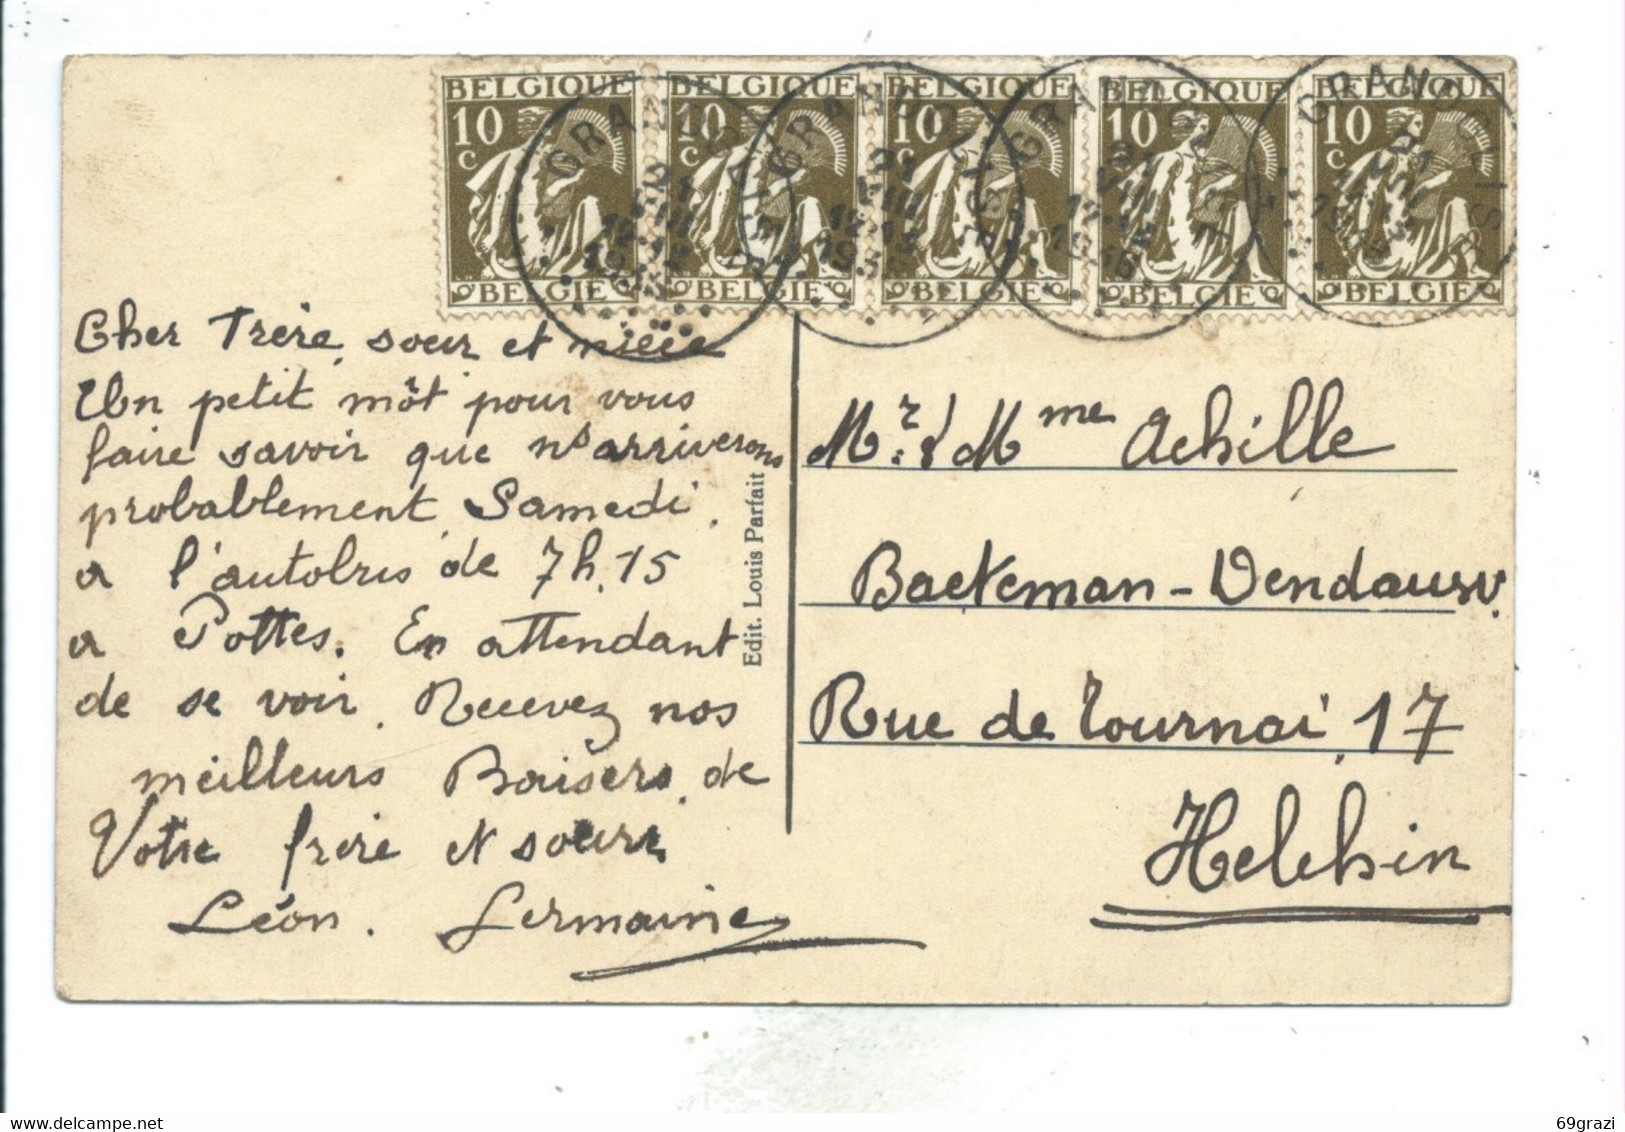 BELGIQUE BELGIQUE BELGIQUE BELGIQUE BELGIQUE
10 c 10 c 10 c 10 c 10 c
BELGIE BELGIE BELGIE BELGIE BELGIE
Cher Frère, soeur et nièce
Un petit môt pour vous
faire savoir que ns arriverons
probablement Samedi.
a l'autobus de 7h.15
a Pottes. En attendant
de se voir. Recevez nos
meilleurs Baisers de
Votre frère et soeur
Léon. Germaine
Edit. Louis Parfait
Mr. & Mme Achille
Baekeman - Vendausv.
Rue de Tournai, 17
Helchin
www.delcampe.net
69grazi